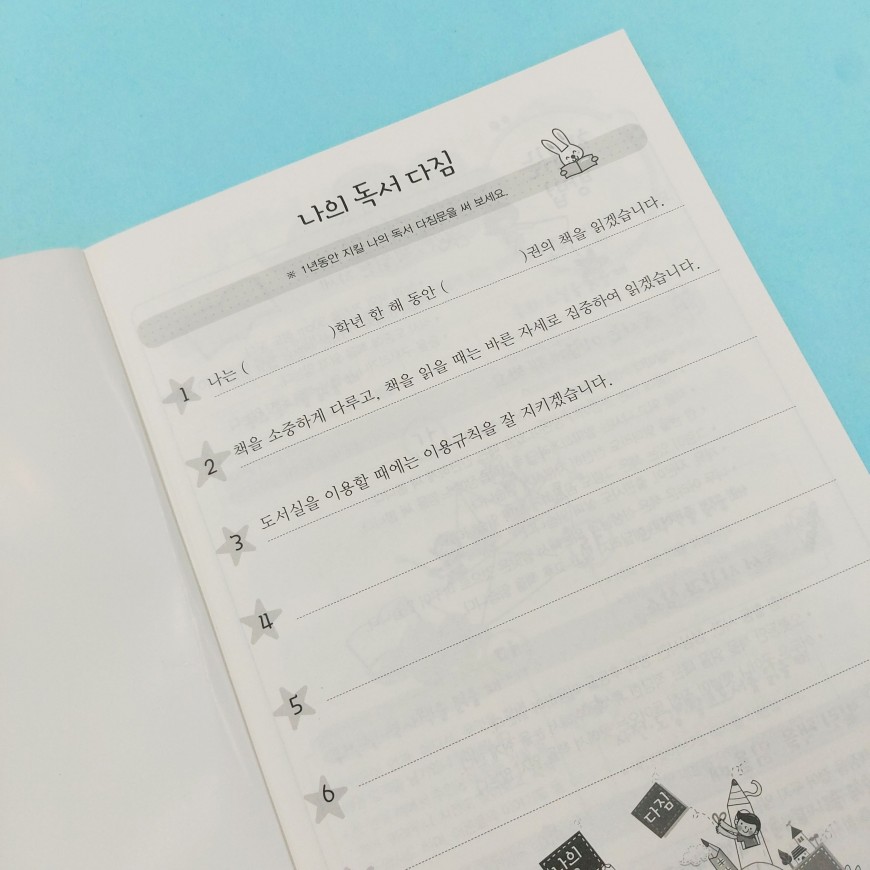 나의 독서 다짐
※ 1년동안 지킬 나의 독서 다짐문을 써 보세요.
1 나는 ( )학년 한 해 동안 ( )권의 책을 읽겠습니다.
2 책을 소중하게 다루고, 책을 읽을 때는 바른 자세로 집중하여 읽겠습니다.
3 도서실을 이용할 때에는 이용규칙을 잘 지키겠습니다.
4
5
6
다짐
나의